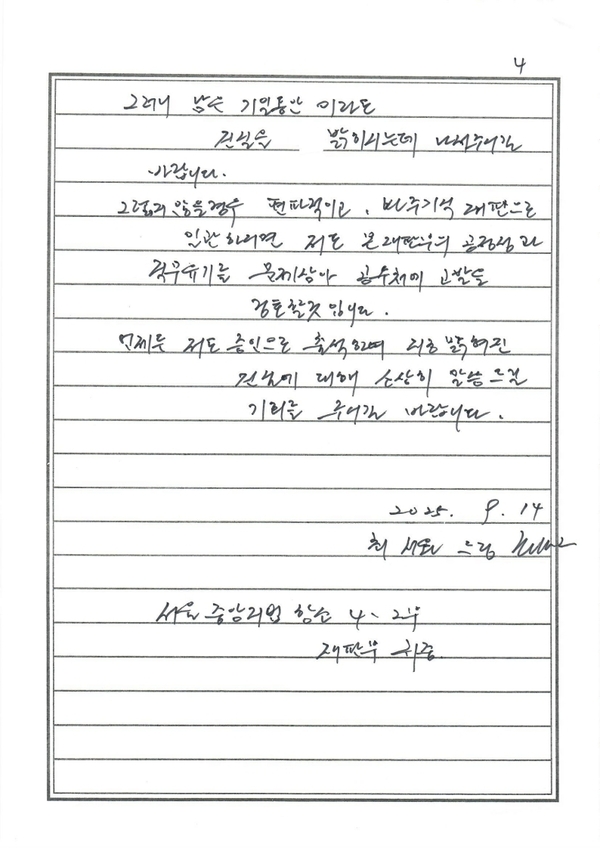 4
그러니 남은 기일동안 이라도
진실을 밝히시는데 나서주시길
바랍니다.
그렇지 않을경우 편파적이고, 봐주기식 재판으로
일관 하려면 저도 본 재판부의 공정성과
직무유기를 문제삼아 공수처에 고발을
검토할것 입니다.
언제든 저도 증인으로 출석하여 저의 밝혀진
진실에 대해 소상히 말씀드릴
기회를 주시길 바랍니다.
2025. 9. 14
최 서원 드림
서울 중앙지법 항소 4-2부
재판부 귀중